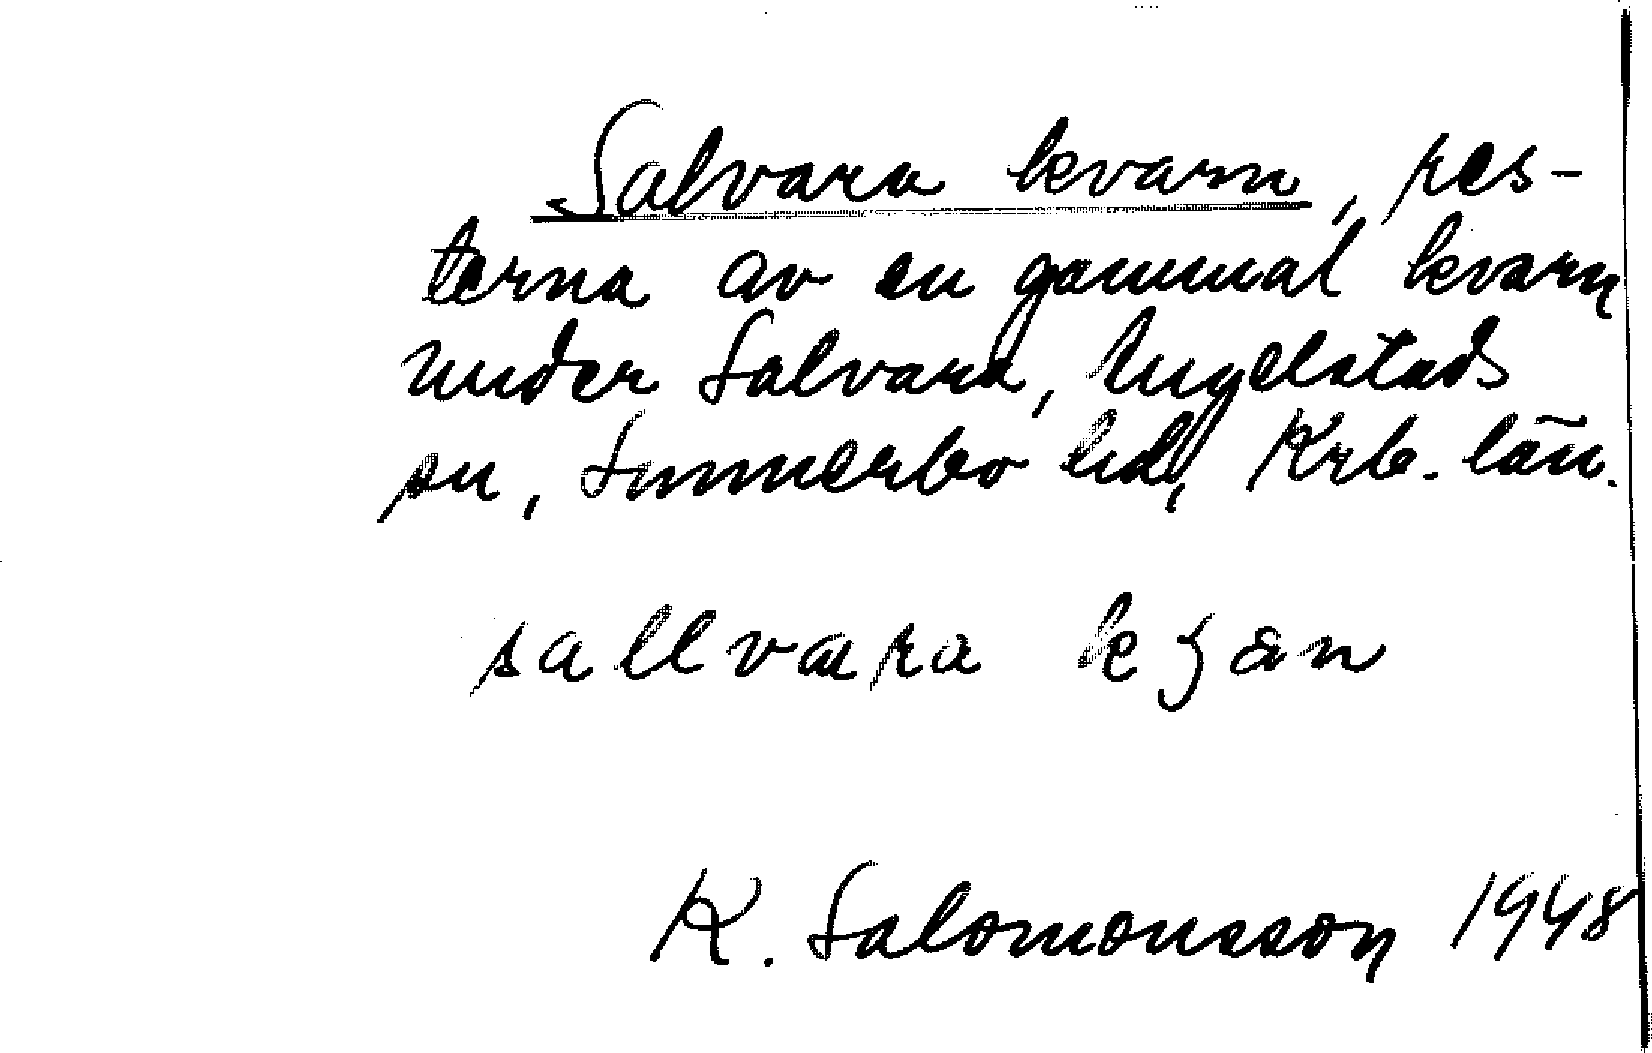 Salvara kvarn, res-
terna av en gammal kvarn
under Salvara, Angelstads
sn, Sunnerbo hd, Krb. län.
sallvara kʒan
K. Salomonsson 1948